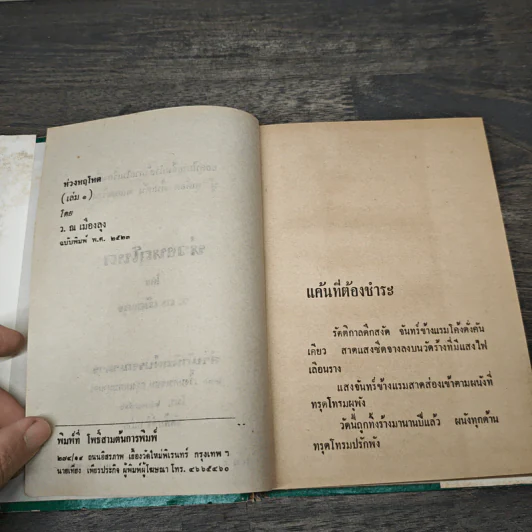 ห้วงหฤโหด
(เล่ม ๑)
โดย
ว. ณ เมืองลุง
ฉบับพิมพ์ พ.ศ. ๒๕๒๓
พิมพ์ที่ โพธิ์สามต้นการพิมพ์
๒๗๔/๑๙ ถนนอิสรภาพ เยื้องวัดใหม่พิเรนทร์ กรุงเทพ ฯ
นายเที่ยง เพียรประกิจ ผู้พิมพ์ผู้โฆษณา โทร. ๔๖๖๕๔๖๐
แค้นที่ต้องชำระ
รัตติกาลดึกสงัด จันทร์ข้างแรมโค้งดั่งคัน
เคียว สาดแสงซีดจางลงบนวัดร้างที่มีแสงไฟ
เลือนราง
แสงจันทร์ข้างแรมสาดส่องเข้าตามผนังที่
ทรุดโทรมผุพัง
วัดนี้ถูกทิ้งร้างมานานปีแล้ว ผนังทุกด้าน
ทรุดโทรมปรักพัง